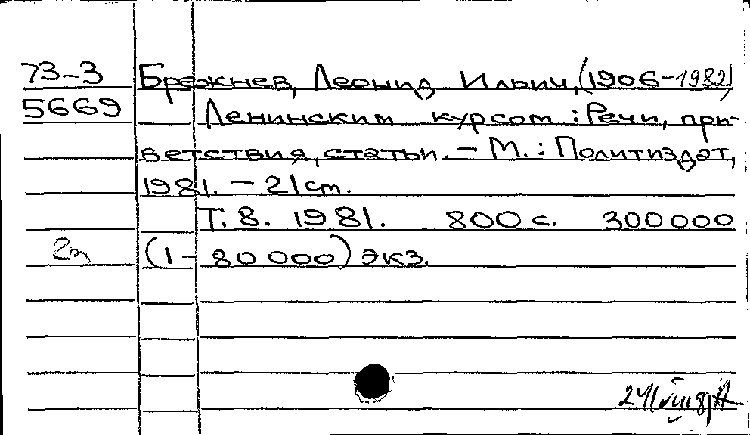 73-3 Брежнев, Леонид Ильич, (1906-1982)
5669 Ленинским курсом : Речи, при-
ветствия, статьи. - М. : Политиздат,
1981. - 21 cm.
Т. 8. 1981. 800 с. 300 000
(1 - 80 000) экз.